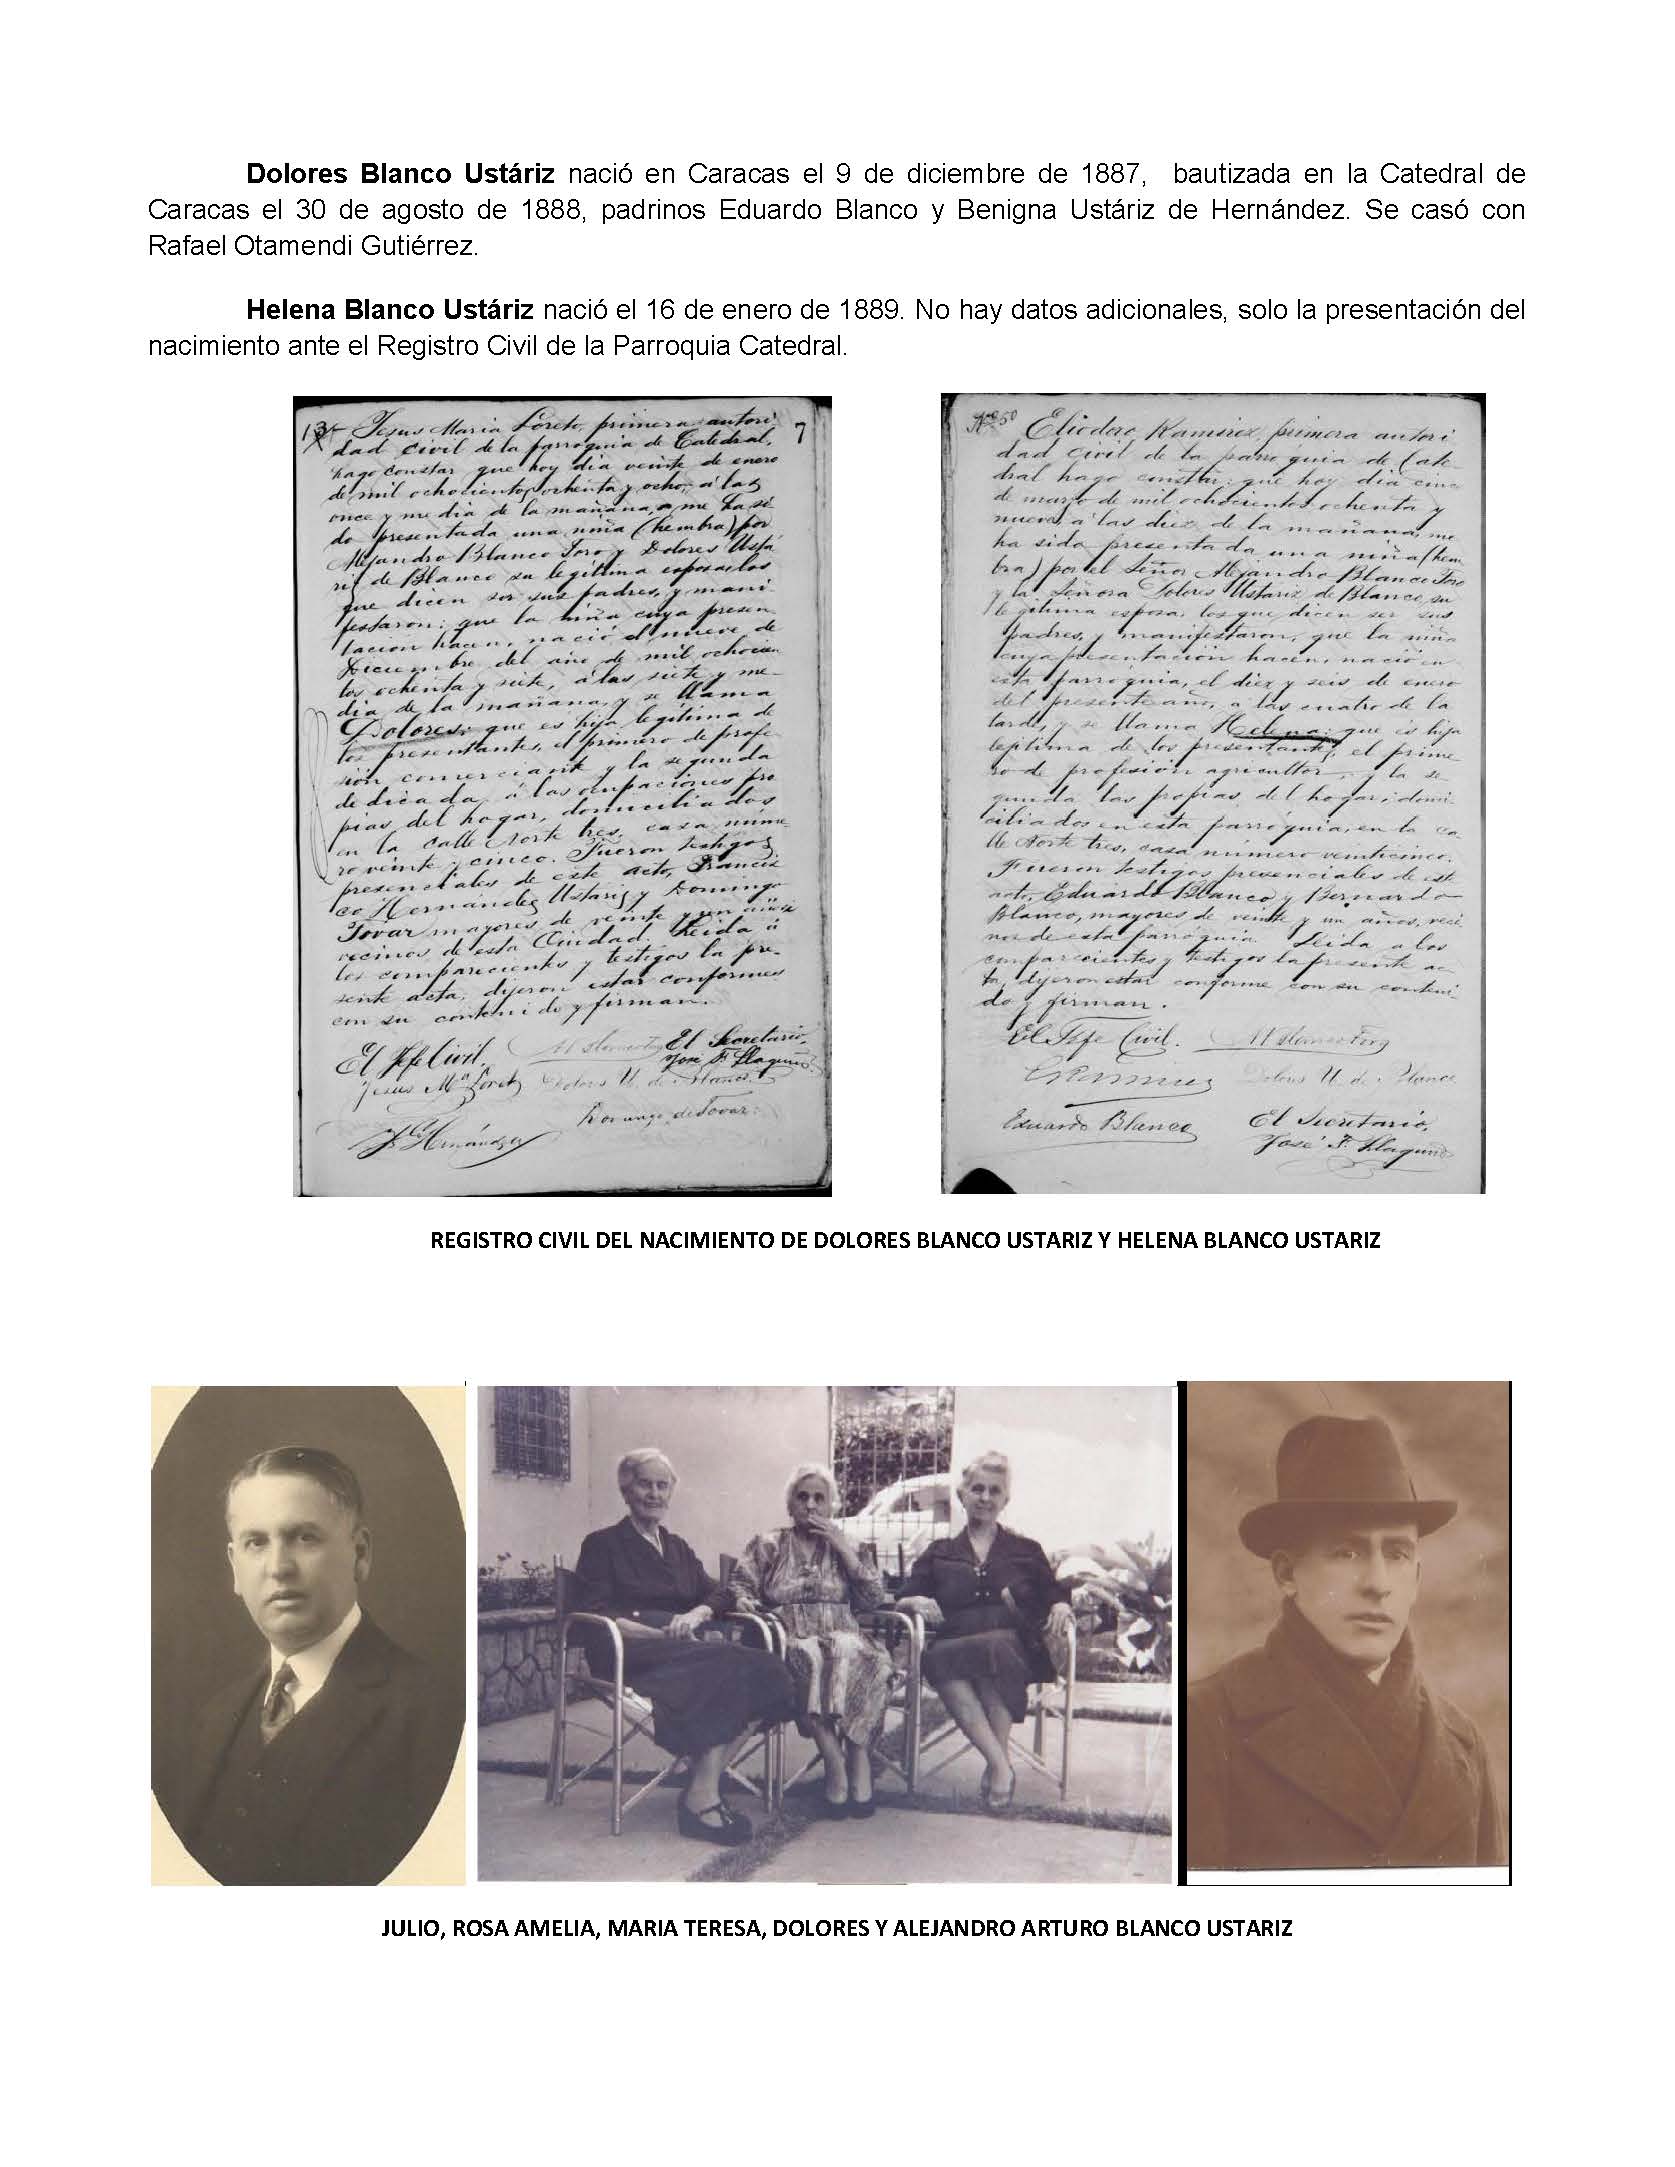 Dolores Blanco Ustáriz nació en Caracas el 9 de diciembre de 1887, bautizada en la Catedral de
Caracas el 30 de agosto de 1888, padrinos Eduardo Blanco y Benigna Ustáriz de Hernández. Se casó con
Rafael Otamendi Gutiérrez.
Helena Blanco Ustáriz nació el 16 de enero de 1889. No hay datos adicionales, solo la presentación del
nacimiento ante el Registro Civil de la Parroquia Catedral.
13 Jesus Maria Loreto, primera autori 7
dad civil de la parroquia de Catedral,
hago constar que hoy dia veinte de enero
de mil ochocientos ochenta y ocho, á las
once y media de la mañana, me ha si
do presentada una niña (hembra) por
Alejandro Blanco Toro y Dolores Ustá
riz de Blanco su legítima esposa, los
que dicen ser sus padres, y mani
festaron: que la niña cuya presen
tación hacen, nació el nueve de
Diciembre del año de mil ochocien
tos ochenta y siete, a las siete y me
dia de la mañana, y se llama
Dolores: que es hija legítima de
los presentantes, el primero de profe
sión comerciante y la segunda
dedicada á las ocupaciones pro
pias del hogar, domiciliados
en la calle Norte tres, casa núme
ro veinte y cinco. Fueron testigos
presenciales de este acto, Francis
co Hernández Ustariz y Domingo
Tovar mayores de veinte y un años
vecinos de esta Ciudad. Leida á
los comparecientes y testigos la pre-
sente acta, dijeron estar conformes
con su contenido y firman.
El Jefe Civil, El Secretario,
Jesus Ma Loreto Dolores U. de Blanco José F. Llaguno
Domingo de Tovar
Hernández
No 50 Eliodoro Ramirez, primera autori
dad civil de la parroquia de Cate-
dral hago constar: que hoy dia cinco
de marzo de mil ochocientos ochenta y
nueve, a las diez de la mañana, me
ha sido presentada una niña (hem
bra) por el Señor Alejandro Blanco Toro
y la Señora Dolores Ustariz de Blanco, su
legítima esposa, los que dicen ser sus
padres, y manifestaron, que la niña
cuya presentación hacen, nació en
esta parroquia, el diez y seis de enero
del presente año, a las cuatro de la
tarde, y se llama Helena: que es hija
legítima de los presentantes, el prime
ro de profesión agricultor, y la se
gunda las propias del hogar; domi-
ciliados en esta parroquia, en la ca
lle Norte tres, casa número veinticinco.
Fueron testigos presenciales de este
acto, Eduardo Blanco y Bernardo
Blanco, mayores de veinte y un años, veci
nos de esta parroquia. Leida a los
comparecientes y testigos la presente ac
ta, dijeron estar conforme con su conteni-
do y firman.
El Jefe Civil. A Blanco Toro
E Ramirez Dolores U. de Blanco
Eduardo Blanco El Secretario,
José F. Llaguno
REGISTRO CIVIL DEL NACIMIENTO DE DOLORES BLANCO USTARIZ Y HELENA BLANCO USTARIZ
JULIO, ROSA AMELIA, MARIA TERESA, DOLORES Y ALEJANDRO ARTURO BLANCO USTARIZ